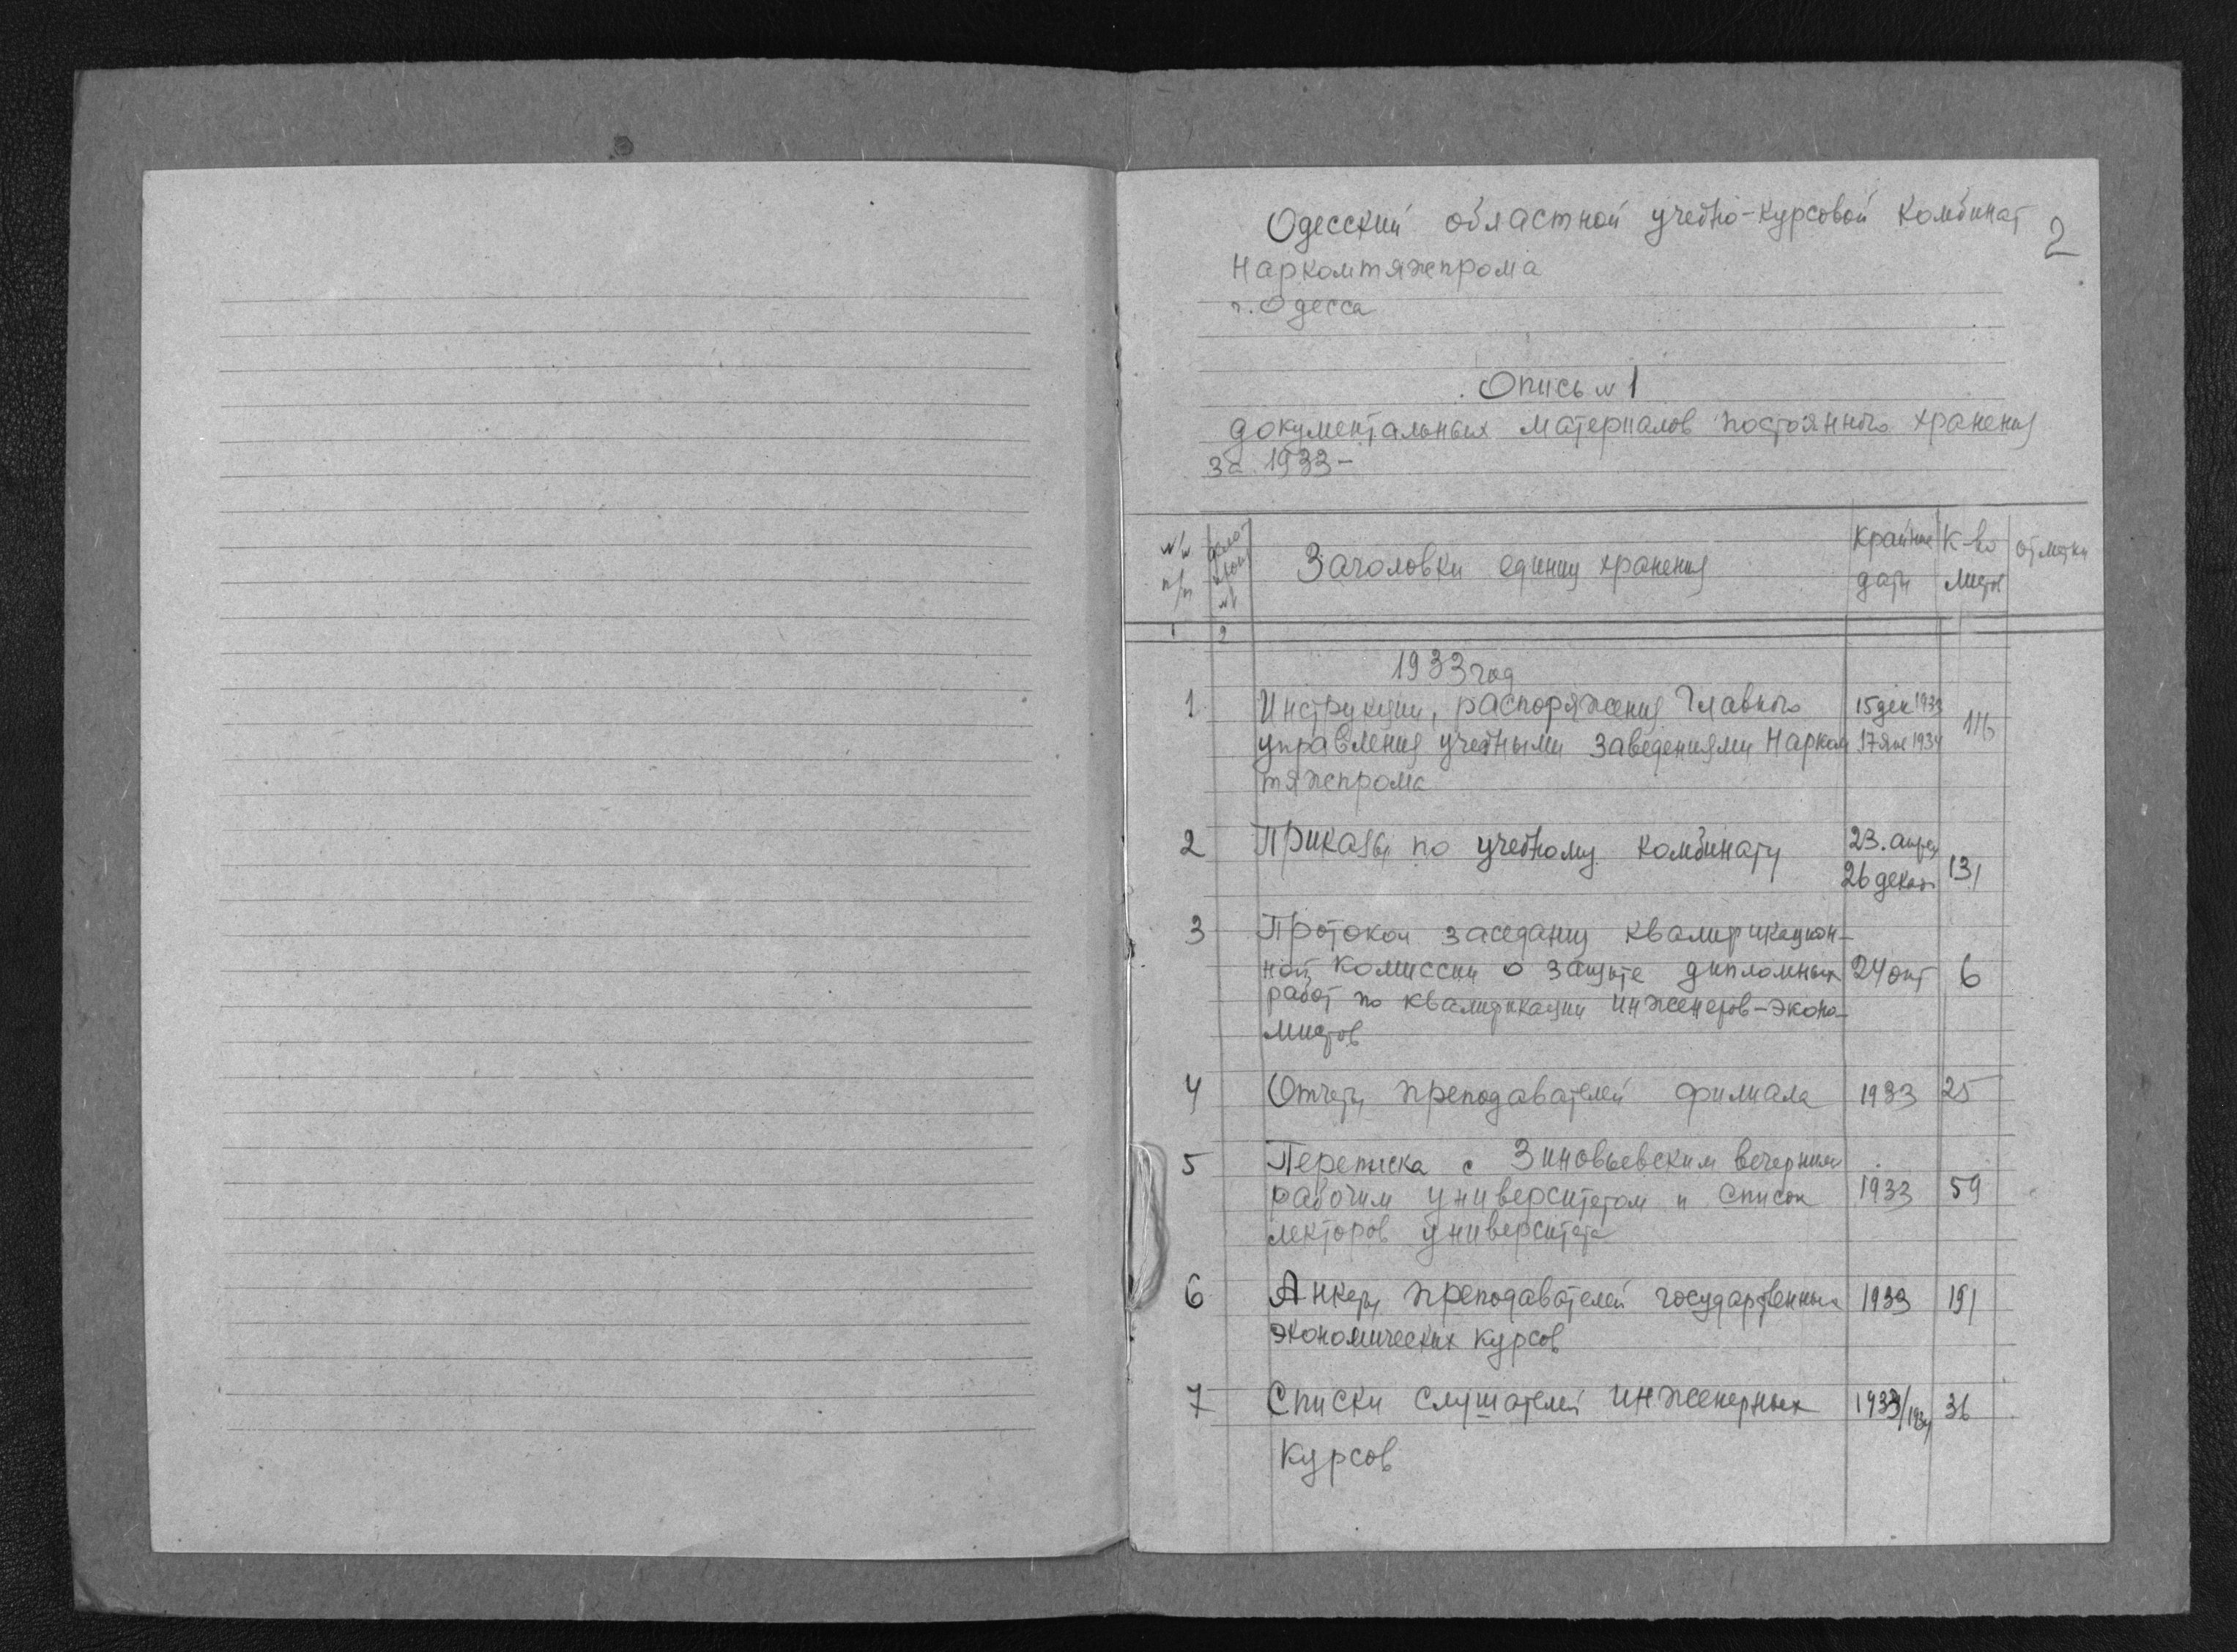 Одесский областной учебно-курсовой комбинат
2
Наркомтяжпрома
г. Одесса
Опись №1
документальных материалов постоянного хранения
за 1933-
№№ п/п
Заголовки единиц хранения
Крайние даты
К-во листов
отметки
1 2
1933 год
1 Инструкции, распоряжения Главного 15 дек 1933
управления учебными заведениями Наркам 17 янв 1934 116
тяжпрома
2 Приказы по учебному комбинату 23. апрел
26 декаб 131
3 Протокол заседания квалификацион-
ной комиссии о защите дипломных 24 окт 6
работ по квалификации инженеров-эконо-
мистов
4 Отчеты преподавателей филиала 1933 25
5 Переписка с Зиновьевским вечерним
рабочим университетом и список 1933 59
лекторов университета
6 Анкеты преподавателей государственных 1933 191
экономических курсов
7 Списки слушателей инженерных 1933/1934 36
курсов